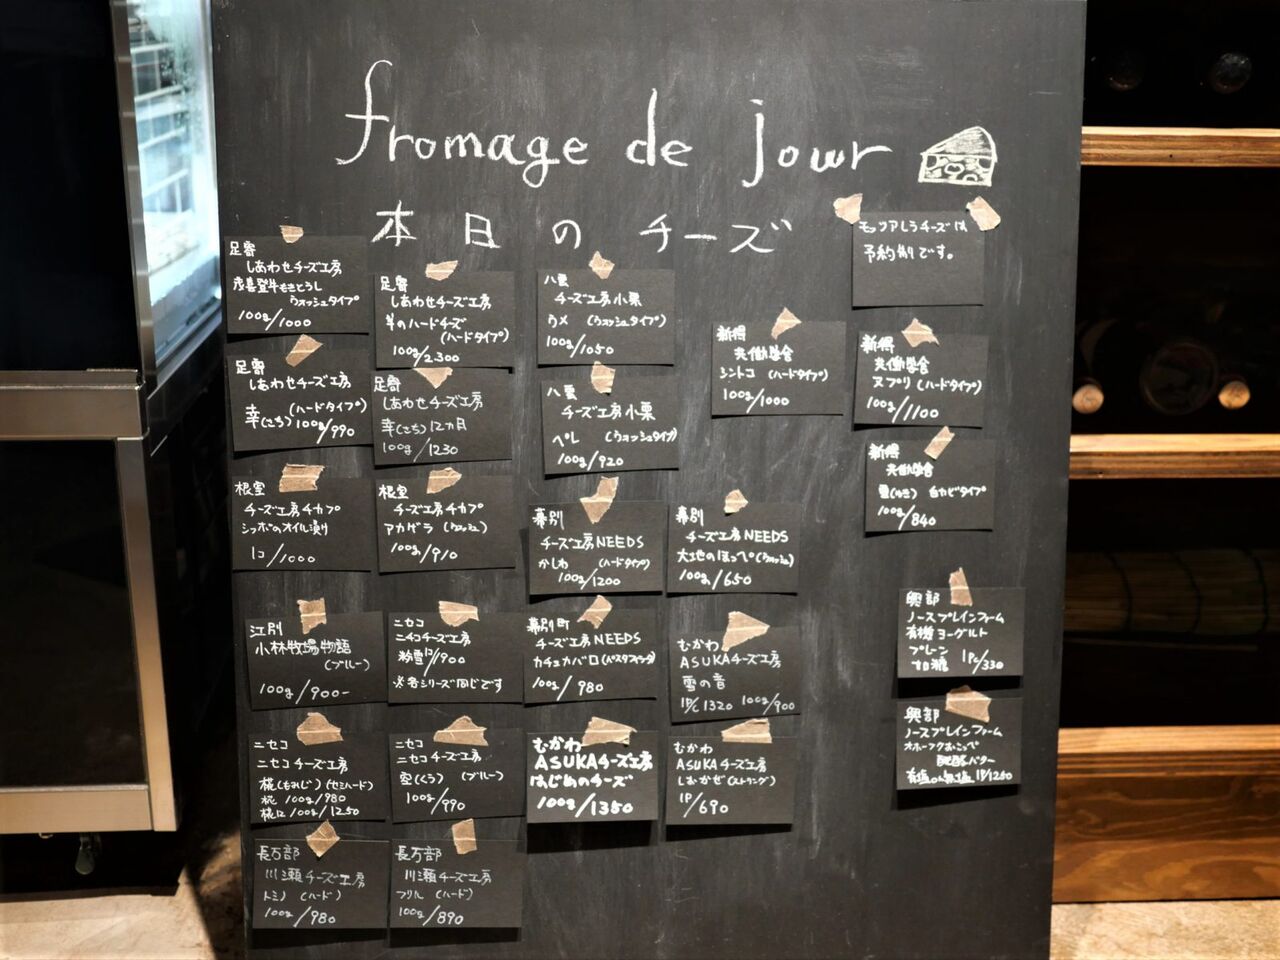 fromage de jour
本日のチーズ
モッツアレラチーズは
予約制です。
足寄
しあわせチーズ工房
茂喜登牛もきとうし
ウォッシュタイプ
100g/1000
足寄
しあわせチーズ工房
羊のハードチーズ
(ハードタイプ)
100g/2,300
八雲
チーズ工房小栗
ウメ (ウォッシュタイプ)
100g/1050
新得
共働学舎
シントコ (ハードタイプ)
100g/1000
新得
共働学舎
ヌプリ(ハードタイプ)
100g/1100
足寄
しあわせチーズ工房
(ハードタイプ)
幸(さち) 100g/990
足寄
しあわせチーズ工房
幸(さち)12ヵ月
100g/1230
八雲
チーズ工房小栗
ペレ (ウォッシュタイプ)
100g/920
新得
共働学舎
雪(ゆき) 白カビタイプ
100g/840
根室
チーズ工房チカプ
シマホのオイル漬け
1コ/1000
根室
チーズ工房チカプ
アカゲラ (ウォッシュ)
100g/910
幕別
チーズ工房NEEDS
かしわ (ハードタイプ)
100g/1200
幕別
チーズ工房NEEDS
大地のほっぺ(ウォッシュ)
100g/650
江別
小林牧場物語
(ブルー)
100g/900-
ニセコ
ニセコチーズ工房
粉雪 /900
※各シリーズ同じです
幕別町
チーズ工房NEEDS
カチョカバロ(パスタフィラタ)
100g/980
むかわ
ASUKAチーズ工房
雪の音
1P/1320 100g/900
興部
ノースプレインファーム
有機ヨーグルト
プレーン
加糖 1PC/330
ニセコ
ニセコチーズ工房
椛(もみじ)(セミハード)
椛 100g/980
椛12 100g/1250
ニセコ
ニセコチーズ工房
空(くう) (ブルー)
100g/990
むかわ
ASUKAチーズ工房
はじめのチーズ
100g/1350
むかわ
ASUKAチーズ工房
しおかぜ(ストリング)
1P/690
興部
ノースプレインファーム
オホーツクおこっぺ
発酵バター
有塩or無塩 1P/1250
長万部
川瀬チーズ工房
トミノ (ハード)
100g/980
長万部
川瀬チーズ工房
フリル (ハード)
100g/890